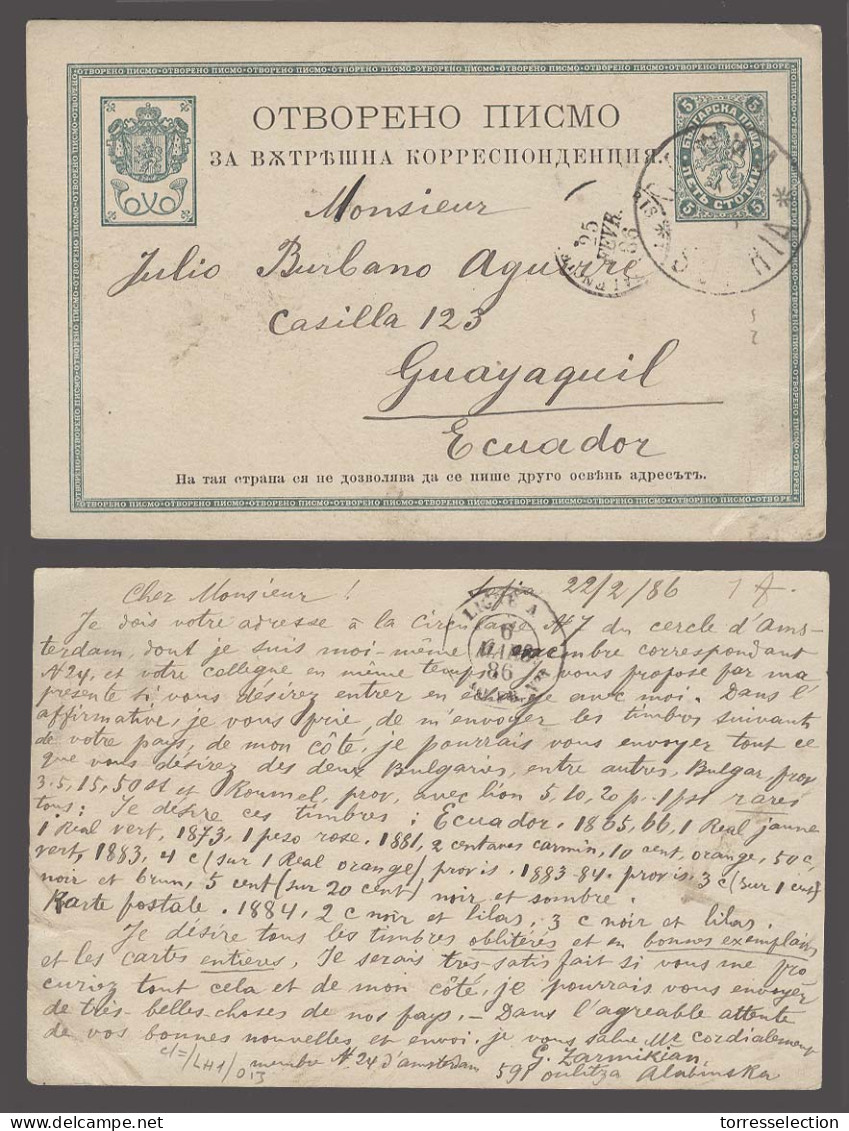 ОТВОРЕНО ПИСМО
ЗА ВѪТРѢШНА КОРРЕСПОНДЕНЦИЯ.
5 5
БЪЛГАРСКА ПОЩА
ПЕТЬ СТОТИНКИ
5 5
Monsieur
25
FEVR.
86
Julio Burbano Aguirre
Casilla 123
Guayaquil
Ecuador
На тая страна ся не дозволява да се пише друго освѣнь адресътъ.
Cher Monsieur ! Sofia 22/2/86
LIGNE A
6
MARS
86
Je dois votre adresse à la circulaire N 7 du cercle d'Ams-
terdam, dont je suis moi-même membre correspondant
N 24, et votre collegue en même temps. Je vous propose par ma
présente si vous désirez entrer en échange avec moi. Dans l'
affirmative, je vous prie, de m'envoyer les timbres suivants
de votre pays, de mon côté, je pourrais vous envoyer tout ce
que vous désirez des deux Bulgaries, entre autres, Bulgar, prov
3. 5, 15, 50 st et Roumel, prov, avec lion 5, 10, 20 p. 1 pst rares
tous: Je désire ces timbres: Ecuador. 1865, 66, 1 Real jaune
1 Real vert, 1873, 1 peso rose. 1881, 2 centavos carmin, 10 cent, orange, 50 c
vert, 1883, 4 c (sur 1 Real orange) provis. 1883-84. provis. 3 c (sur 1 cent)
noir et brun, 5 cent (sur 20 cent) noir et sombre.
Karte postale. 1884, 2 c noir et lilas, 3 c noir et lilas.
Je désire tous les timbres oblitérés et en bonnes exemplaires
et les cartes entières. Je serais très-satisfait si vous me pro-
curiez tout cela et de mon côté, je pourrais vous envoyer
de très-belles-choses de nos pays. – Dans l'agreable attente
de vos bonnes nouvelles et envoi, je vous salue Mr cordialement
G. Zarmikian,
membre N. 24 d'amsterdam 59 oulitza Alabinska
torresselection